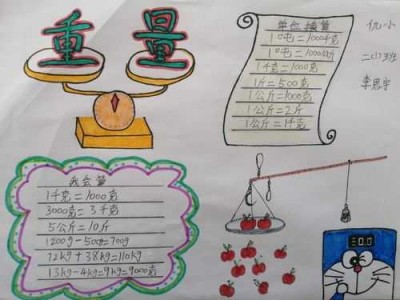 重量
单位换算
1吨=1000千克
1吨=1000公斤
1千克=1000克
1斤=500克
1公斤=1000克
1公斤=2斤
1公斤=1千克
一小
李思宇
我会算
1千克=1000克
3000克=3千克
5公斤=10斤
1200g-500g=700g
72kg+38kg=110kg
13kg-4kg=9kg=9000克
0.0